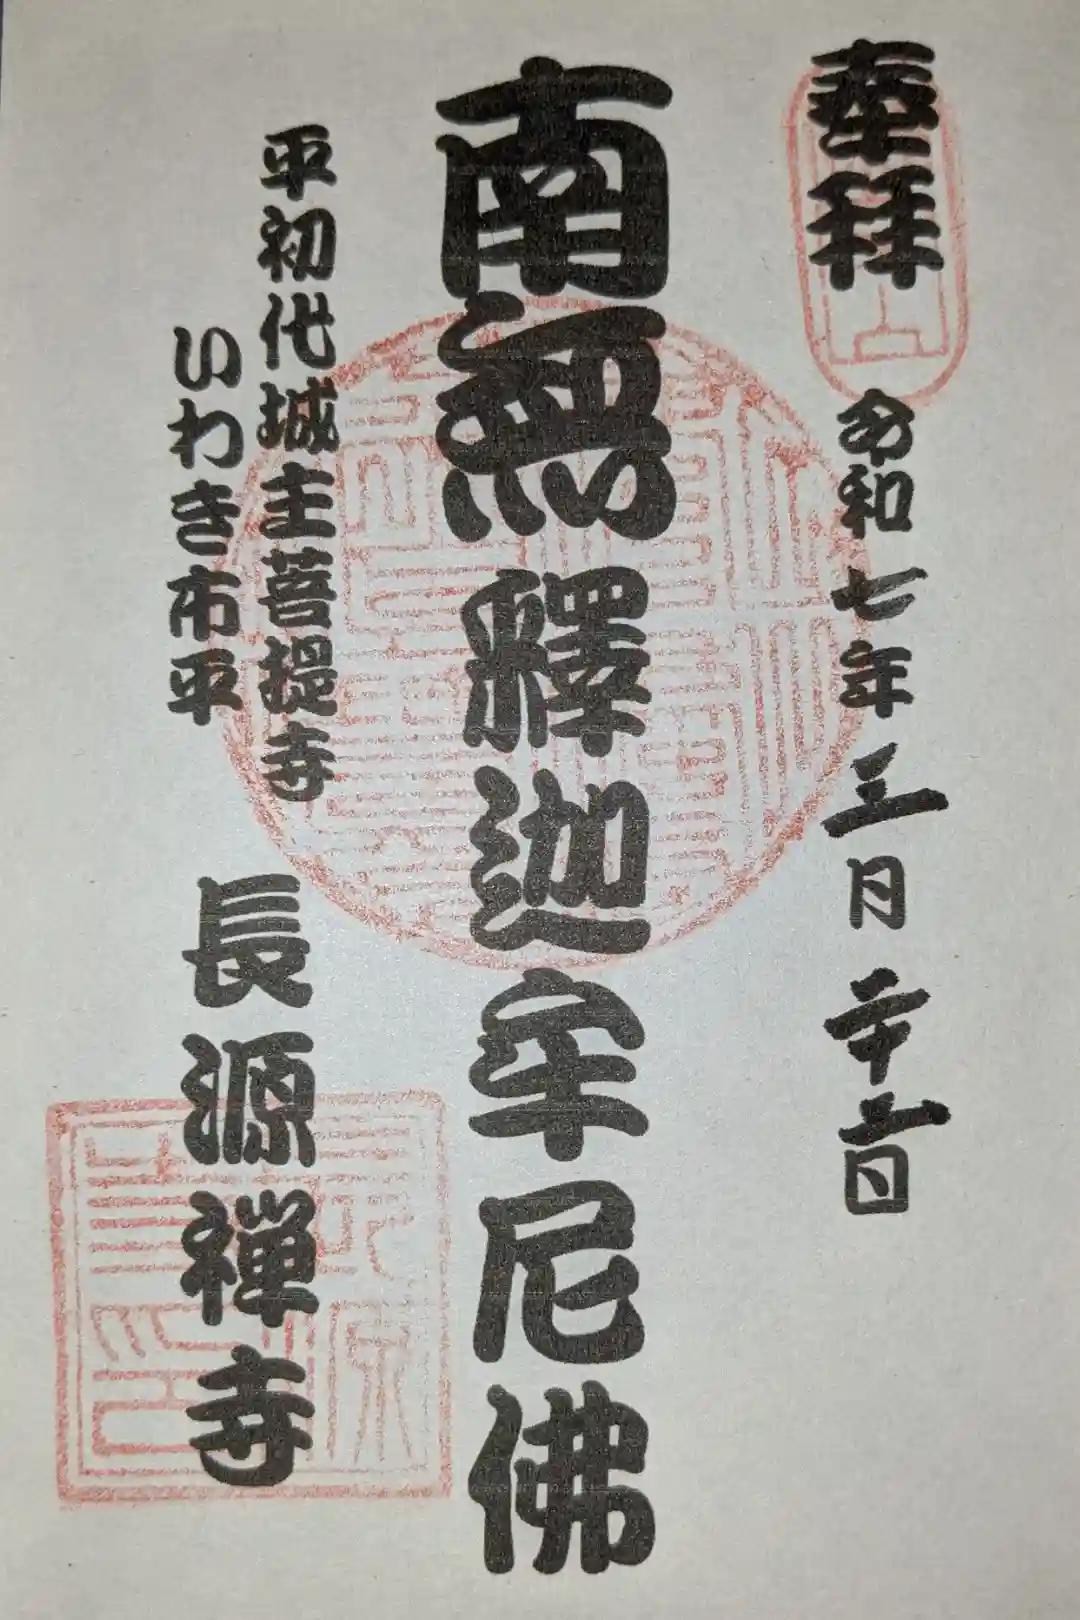 奉拝
令和七年三月二十 日
南無釋迦牟尼佛
平初代城主菩提寺
いわき市平
長源禅寺